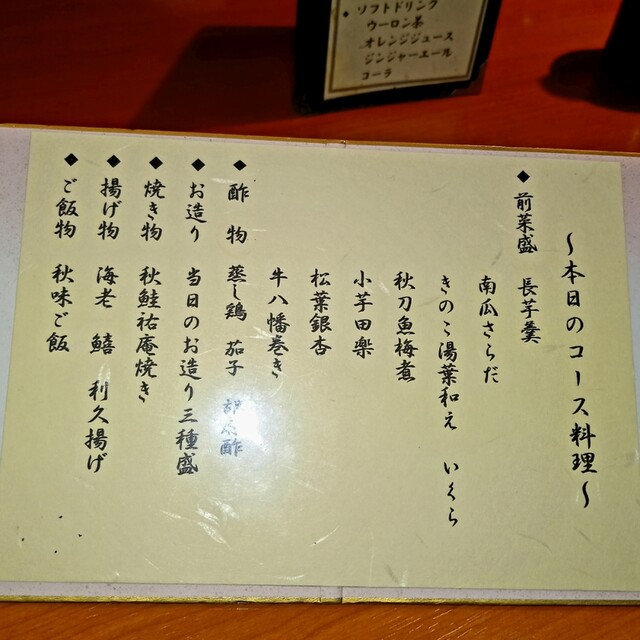 ◆ソフトドリンク
ウーロン茶
オレンジジュース
ジンジャーエール
コーラ
～本日のコース料理～
◆前菜盛 長芋羹
南瓜さらだ
きのこ湯葉和え いくら
秋刀魚梅煮
小芋田楽
松葉銀杏
牛八幡巻き
◆酢物 蒸し鶏 茄子 胡麻酢
◆お造り 当日のお造り三種盛
◆焼き物 秋鮭祐庵焼き
◆揚げ物 海老 鱚 利久揚げ
◆ご飯物 秋味ご飯